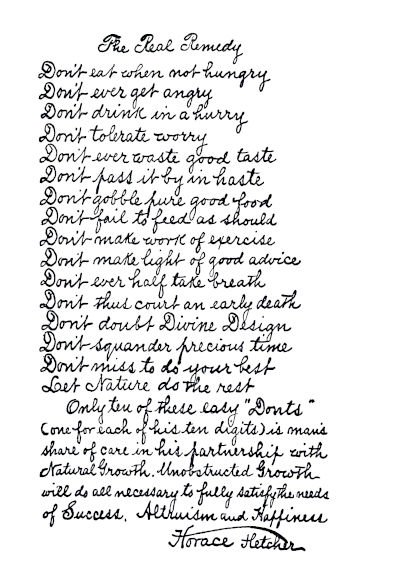 The Real Remedy
Don't eat when not hungry
Don't ever get angry
Don't drink in a hurry
Don't tolerate worry
Don't ever waste good taste
Don't pass it by in haste
Don't gobble pure good food
Don't fail to feed as should
Don't make work of exercise
Don't make light of good advice
Don't ever half take breath
Don't thus court an early death
Don't doubt Divine Design
Don't squander precious time
Don't miss to do your best
Let Nature do the rest
Only ten of these easy "Donts"
(one for each of his ten digits) is man's
share of care in his partnership with
Natural Growth. Unobstructed Growth
will do all necessary to fully satisfy the needs
of Success, Altruism and Happiness
Horace Fletcher